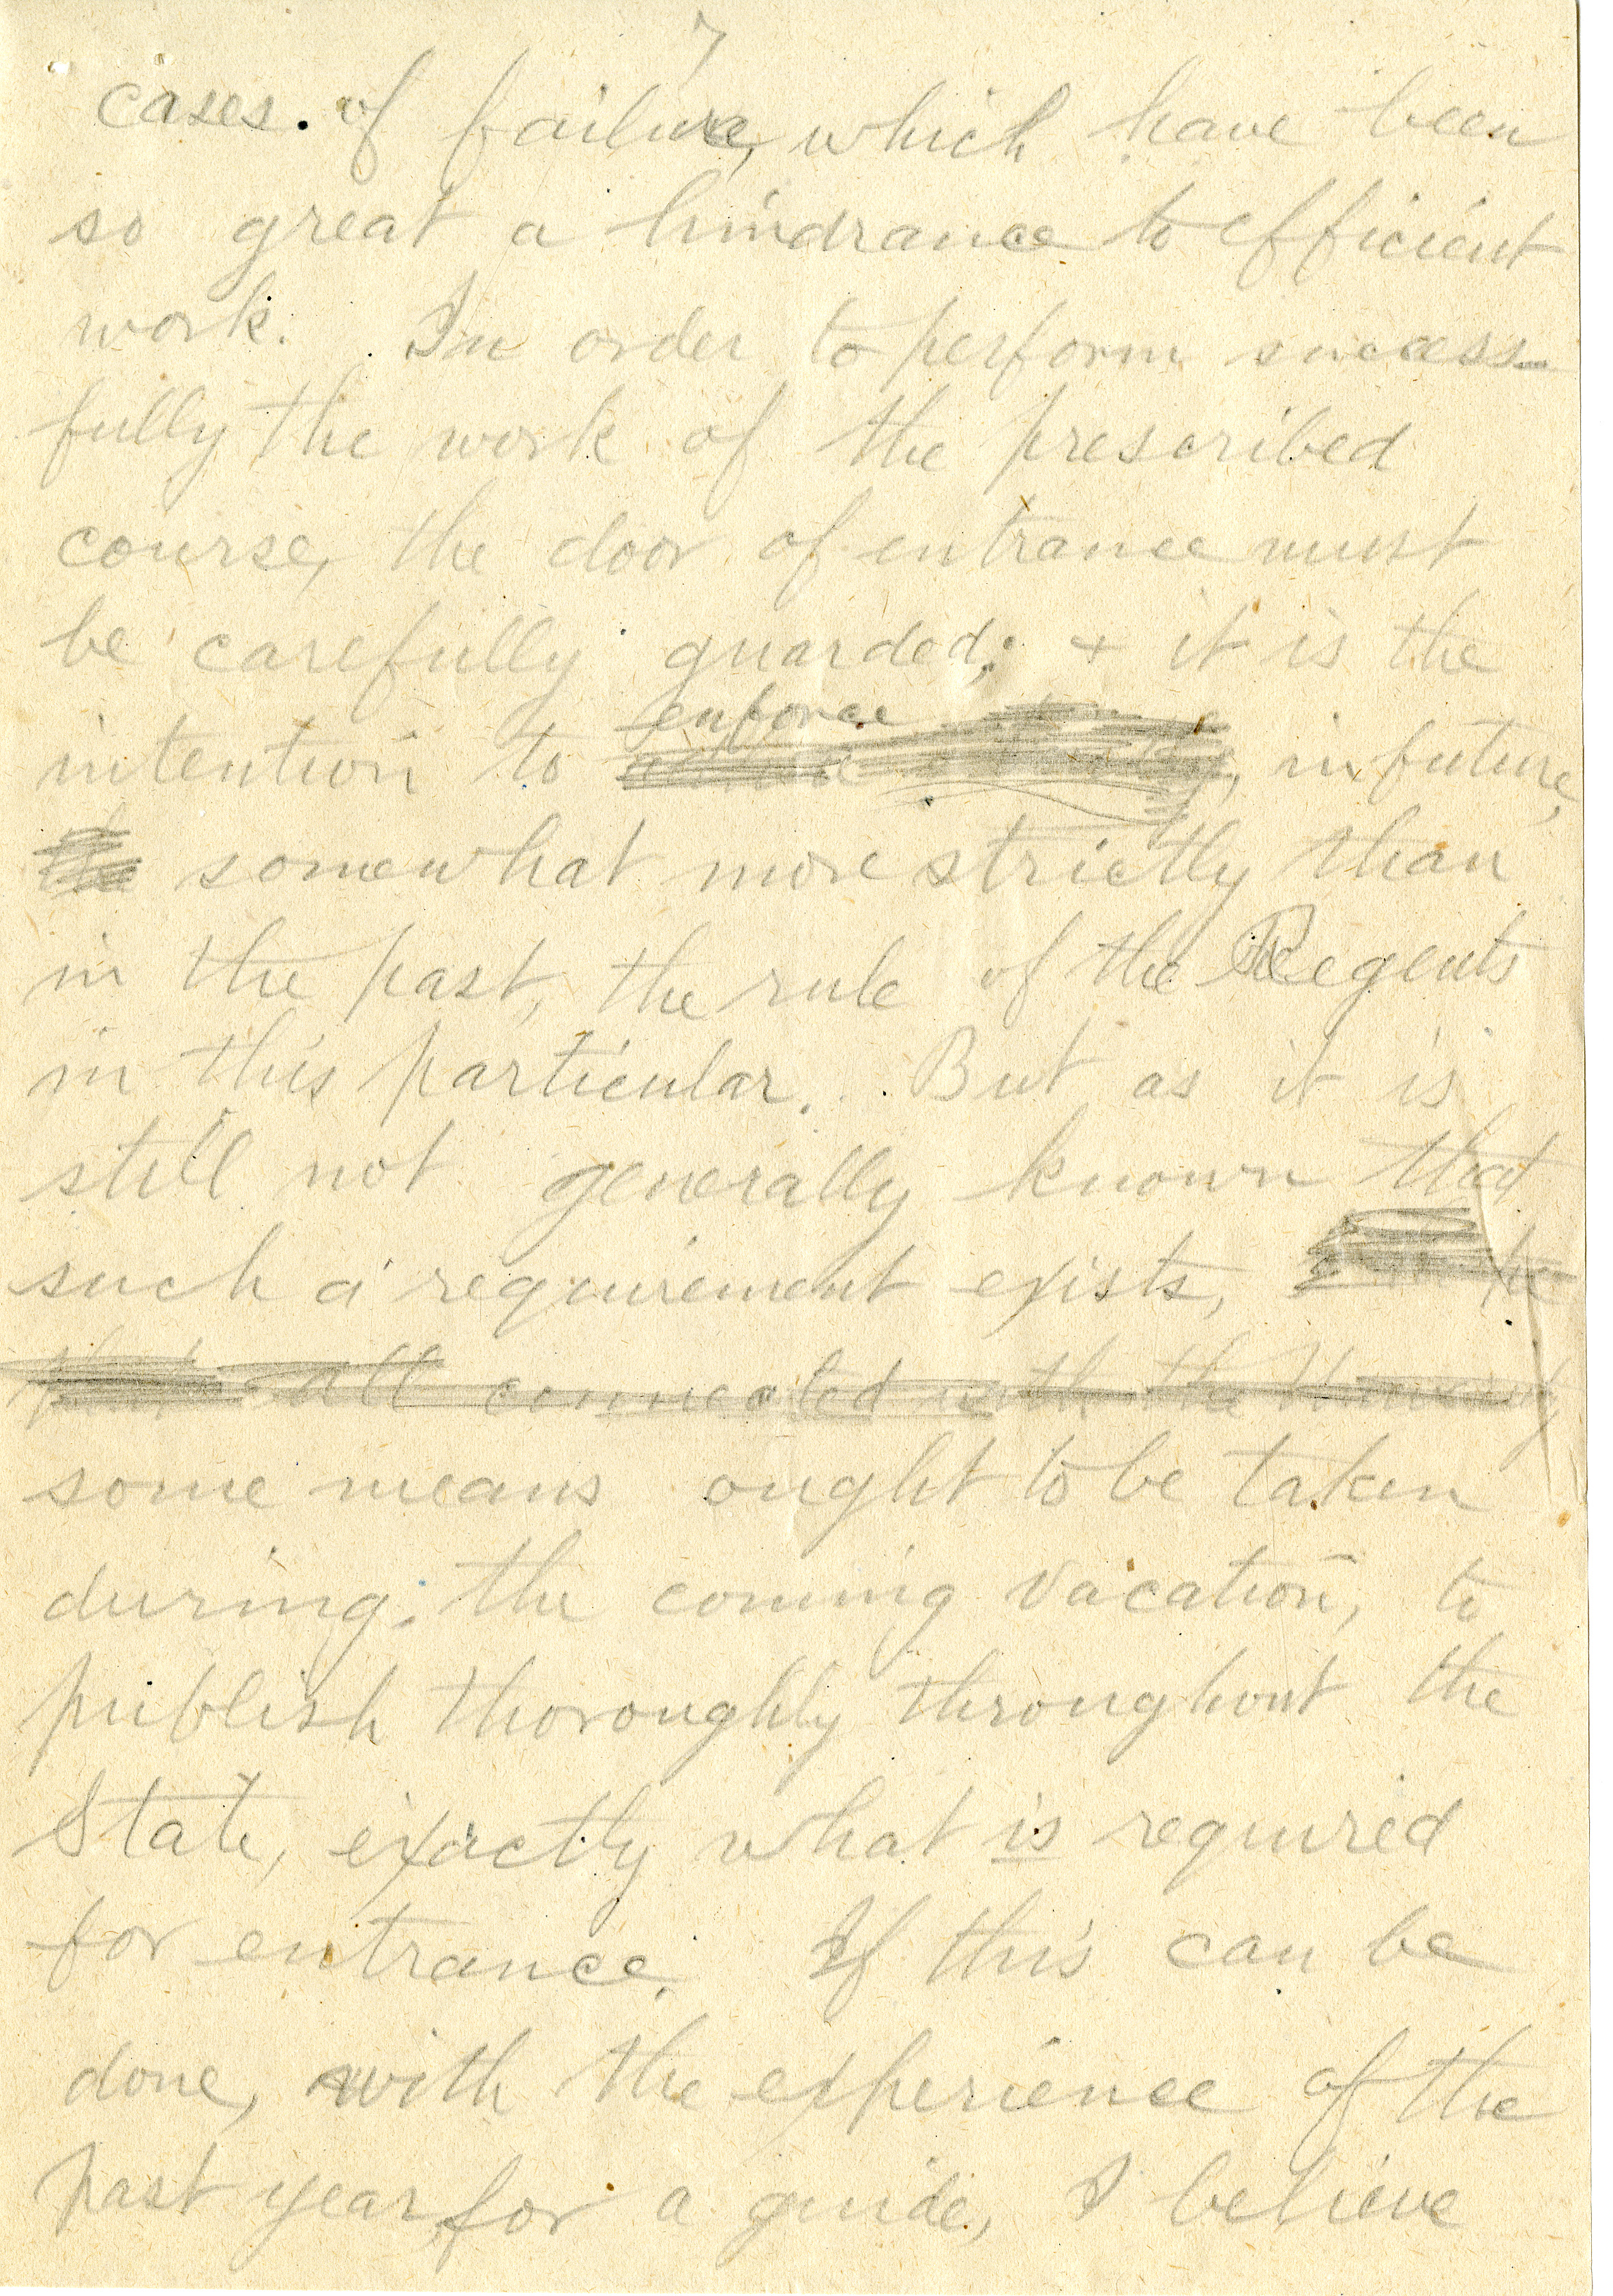 7
cases of failure, which have been
so great a hindrance to efficient
work. In order to perform success-
fully the work of the prescribed
course, the door of entrance must
be carefully guarded; + it is the
enforce
intention to , in future,
somewhat more strictly than
in the past, the rule of the Regents
in this particular. But as it is
still not generally known that
such a requirement exists,
all connected with the University
some means ought to be taken
during the coming vacation, to
publish thoroughly throughout the
State, exactly what is required
for entrance. If this can be
done, with the experience of the
past year, for a guide, I believe